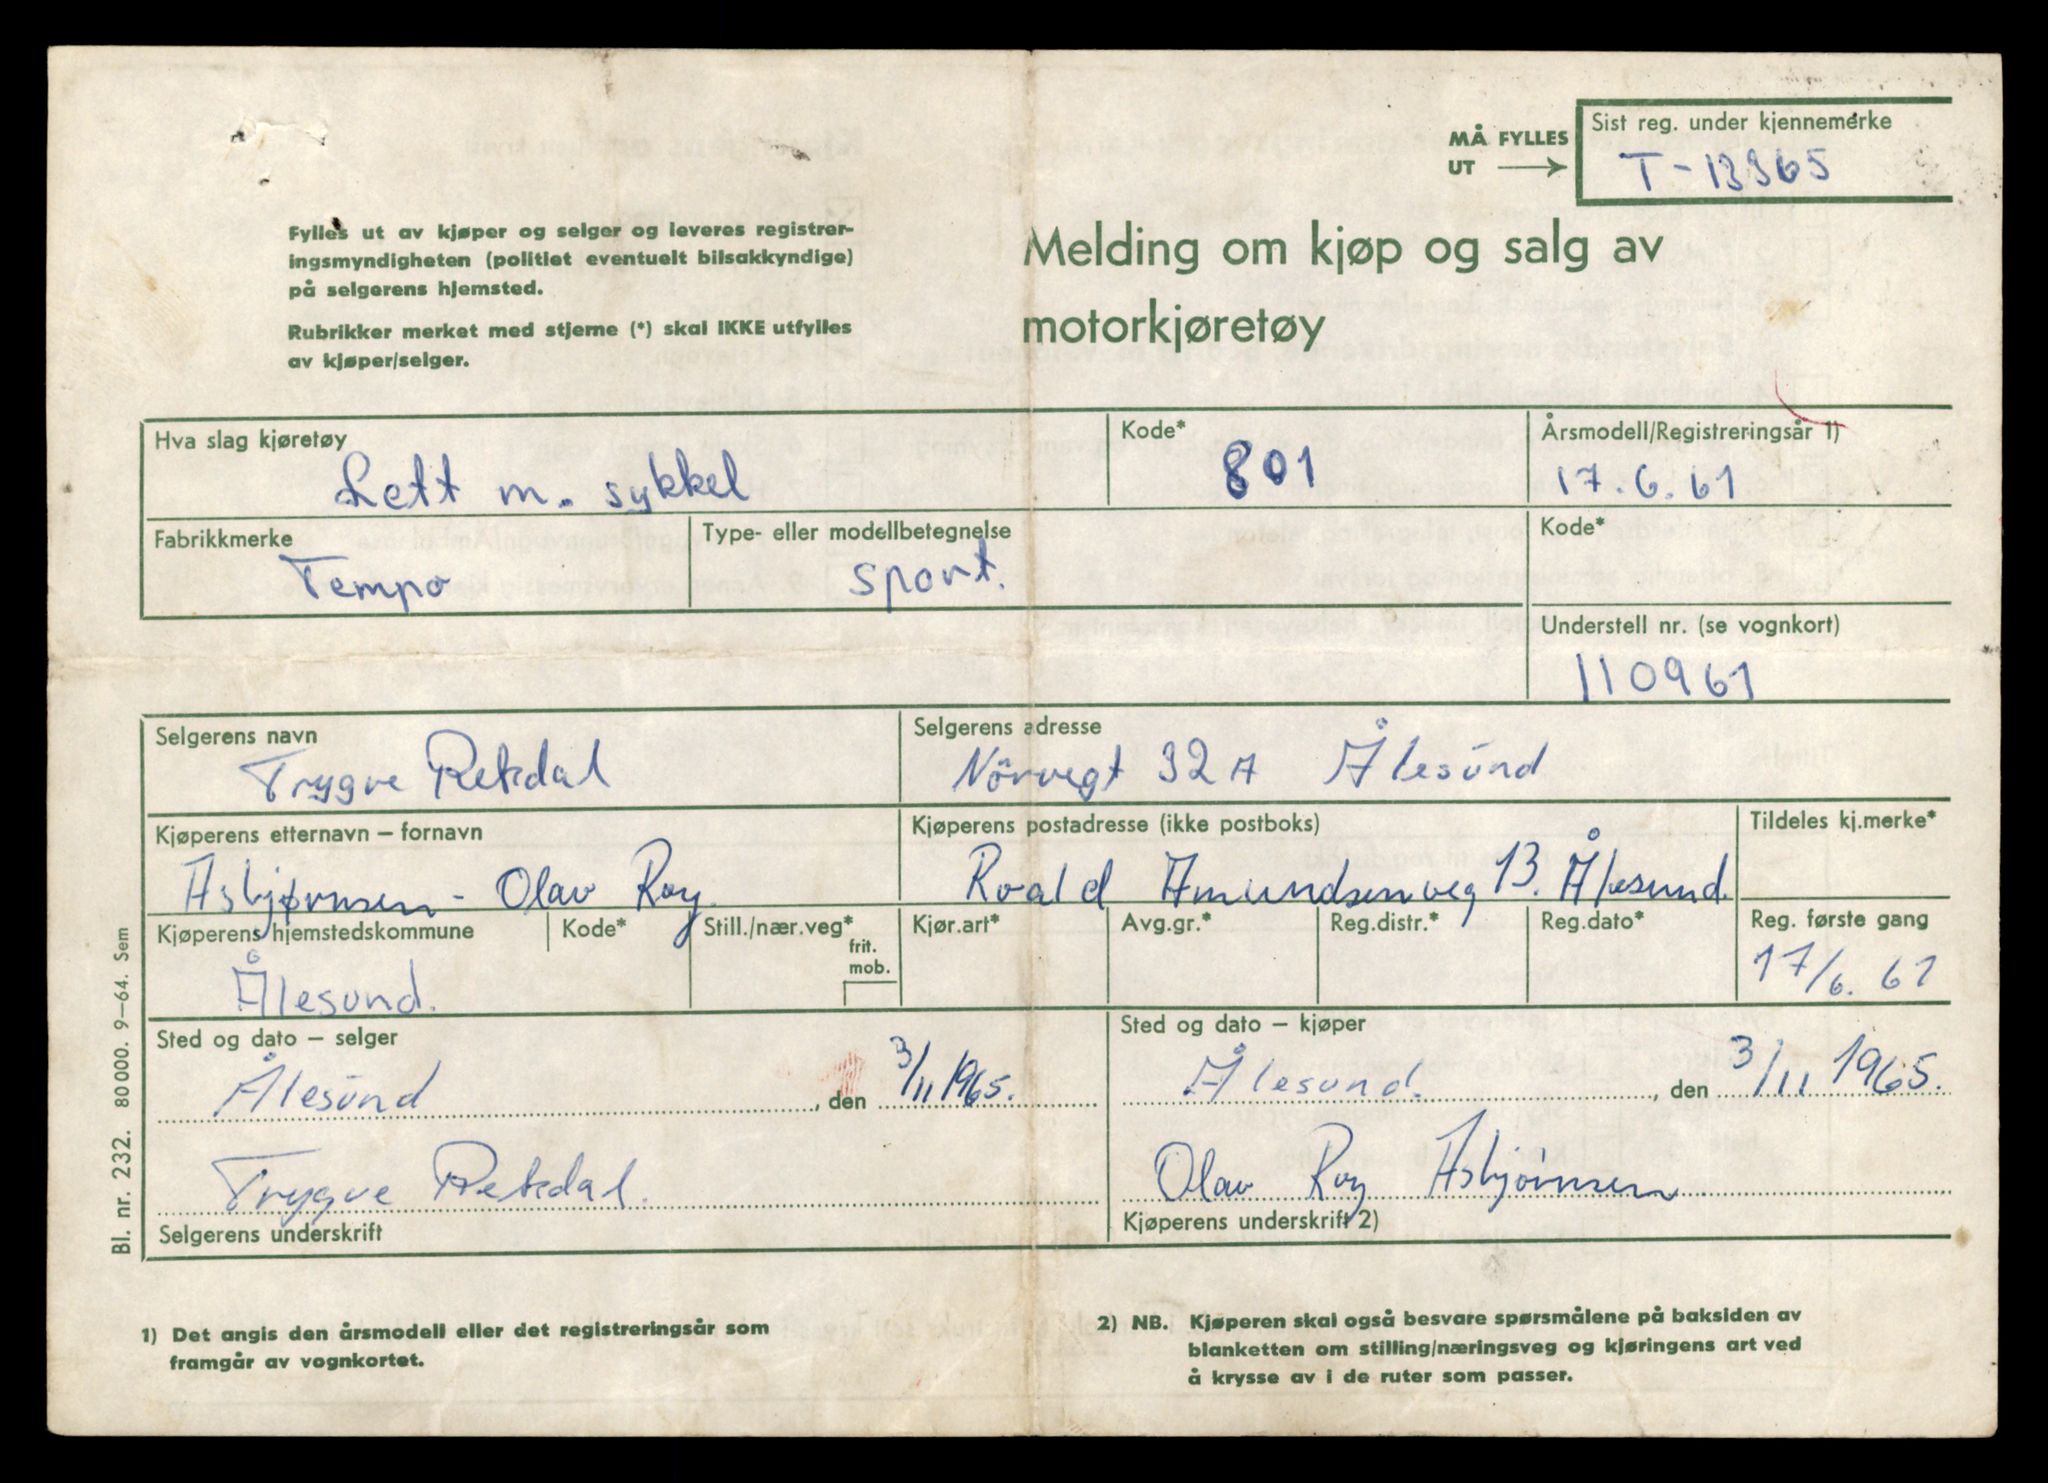 MÅ FYLLES
UT →
Sist reg. under kjennemerke
T-13365
Fylles ut av kjøper og selger og leveres registrer-
ingsmyndigheten (politiet eventuelt bilsakkyndige)
på selgerens hjemsted.
Rubrikker merket med stjerne (*) skal IKKE utfylles
av kjøper/selger.
Melding om kjøp og salg av
motorkjøretøy
Hva slag kjøretøy
Lett m. sykkel
Kode*
801
Årsmodell/Registreringsår 1)
17.6.61
Fabrikkmerke
Tempo
Type- eller modellbetegnelse
sport.
Kode*
Understell nr. (se vognkort)
110961
Selgerens navn
Trygve Rekdal
Selgerens adresse
Nörvegt 32A Ålesund
Kjøperens etternavn – fornavn
Asbjørnsen - Olav Roy.
Kjøperens postadresse (ikke postboks)
Roald Amundsenveg 13. Ålesund.
Tildeles kj.merke*
Kjøperens hjemstedskommune
Ålesund.
Kode*
Still./nær.veg*
frit.
mob.
Kjør.art*
Avg.gr.*
Reg.distr.*
Reg.dato*
Reg. første gang
17/6. 61
Sted og dato – selger
Ålesund, den 3/11 1965.
Trygve Rekdal.
Selgerens underskrift
Sted og dato – kjøper
Ålesund., den 3/11 1965.
Olav Roy Asbjørnsen
Kjøperens underskrift 2)
Bl. nr. 232. 80 000. 9–64. Sem
1) Det angis den årsmodell eller det registreringsår som
framgår av vognkortet.
2) NB. Kjøperen skal også besvare spørsmålene på baksiden av
blanketten om stilling/næringsveg og kjøringens art ved
å krysse av i de ruter som passer.